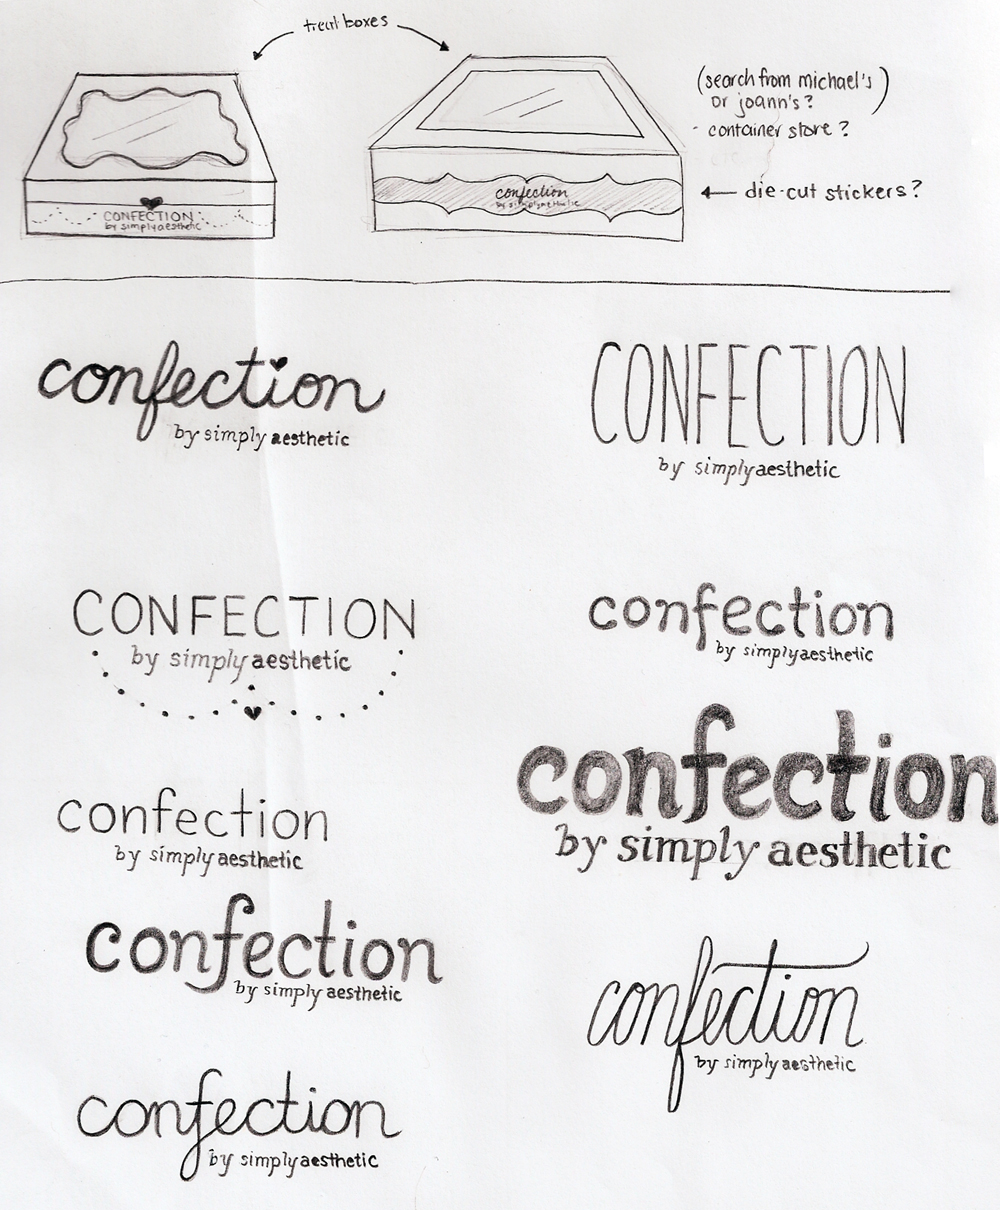 treat boxes
(search from michael's)
or joann's?
- container store?
die-cut stickers?
CONFECTION
by simplyaesthetic
confection
by simplyaesthetic
confection
by simply aesthetic
CONFECTION
by simplyaesthetic
CONFECTION
by simply aesthetic
confection
by simplyaesthetic
confection
by simply aesthetic
confection
by simply aesthetic
confection
by simply aesthetic
confection
by simplyaesthetic
confection
by simplyaesthetic